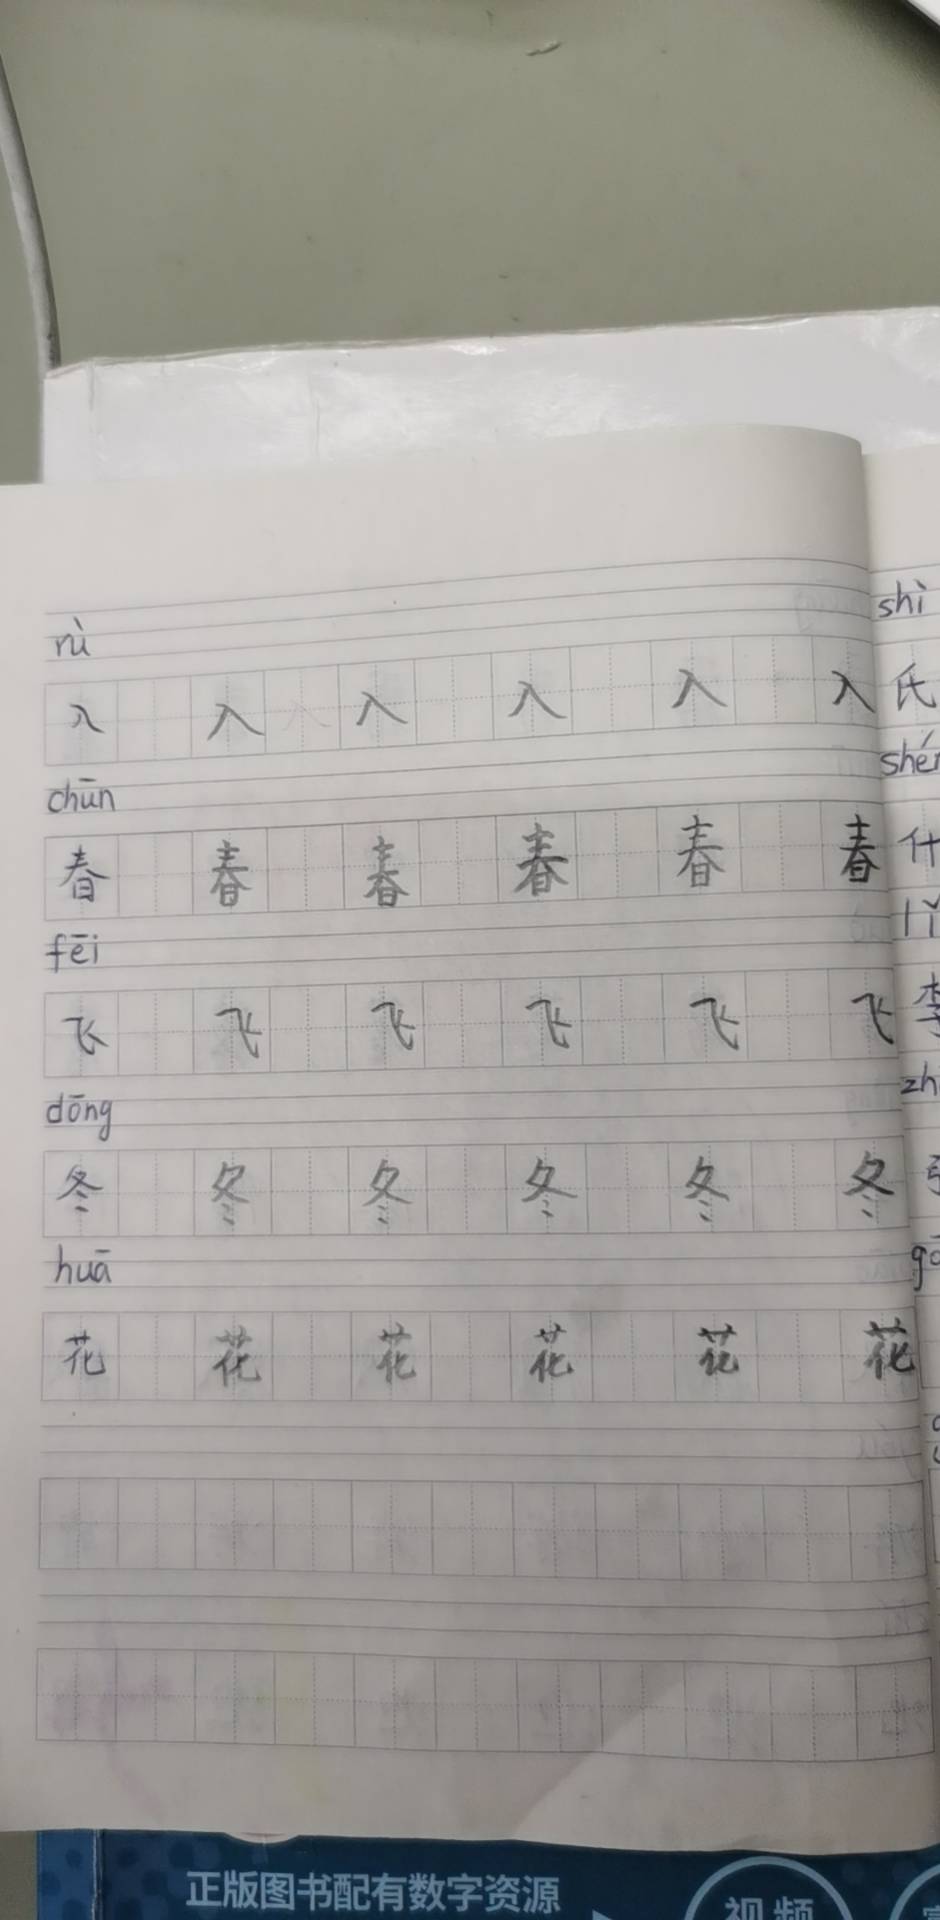 rù
入 入 入 入 入 入
chūn
春 春 春 春 春 春
fēi
飞 飞 飞 飞 飞 飞
dōng
冬 冬 冬 冬 冬 冬
huā
花 花 花 花 花 花
shì
氏
什
lǐ
李
正版图书配有数字资源
视频